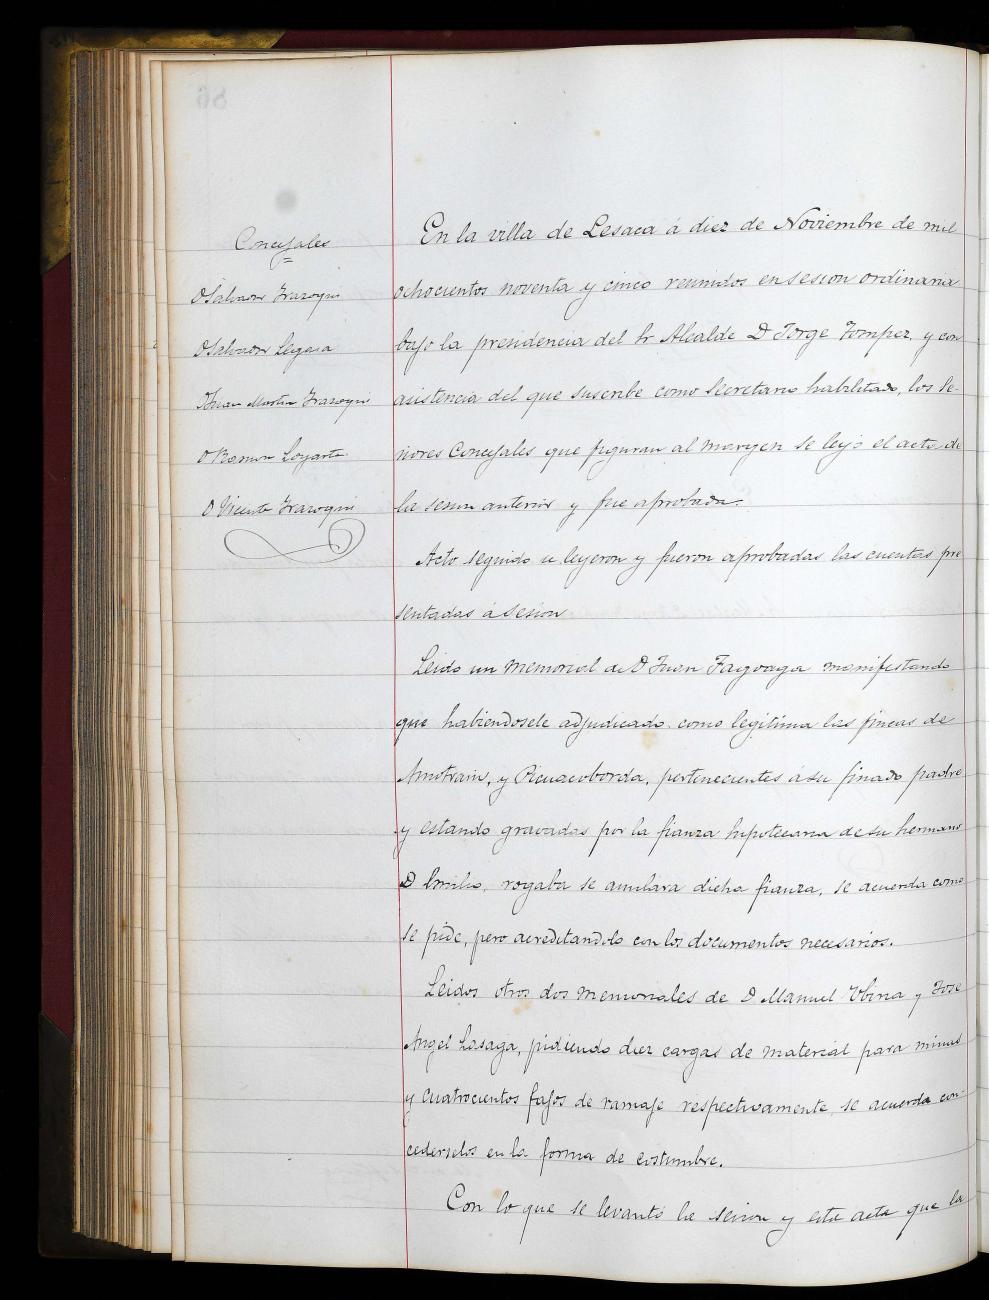 Concejales
D Salvador Irazoqui
D Salvador Legasa
Juan Martin Irazoqui
D Ramon Loyarte
D Vicente Irazoqui
En la villa de Lesaca á diez de Noviembre de mil
ochocientos noventa y cinco reunidos en sesion ordinaria
bajo la presidencia del Sr Alcalde D Jorge Tompez, y con
asistencia del que suscribe como Secretario habilitado, los Se-
ñores Concejales que figuran al margen se leyó el acta de
la sesion anterior y fue aprobada.
Acto seguido se leyeron y fueron aprobadas las cuentas pre
sentadas á sesion
Leido un memorial de D Juan Fagoaga manifestando
que habiendosele adjudicado como legitima las fincas de
y estando gravadas por la fianza hipotecaria de su hermano
D Emilio, rogaba se anulara dicha fianza, se acuerda como
se pide, pero acreditandolo con los documentos necesarios.
Leidos otros dos memoriales de D Manuel Ubiria y Jose
Angel Lasaga, pidiendo diez cargas de material para minas
y cuatrocientos fajos de ramaje respectivamente, se acuerda con
cederselos en la forma de costumbre.
Con lo que se levantó la sesion y esta acta que la